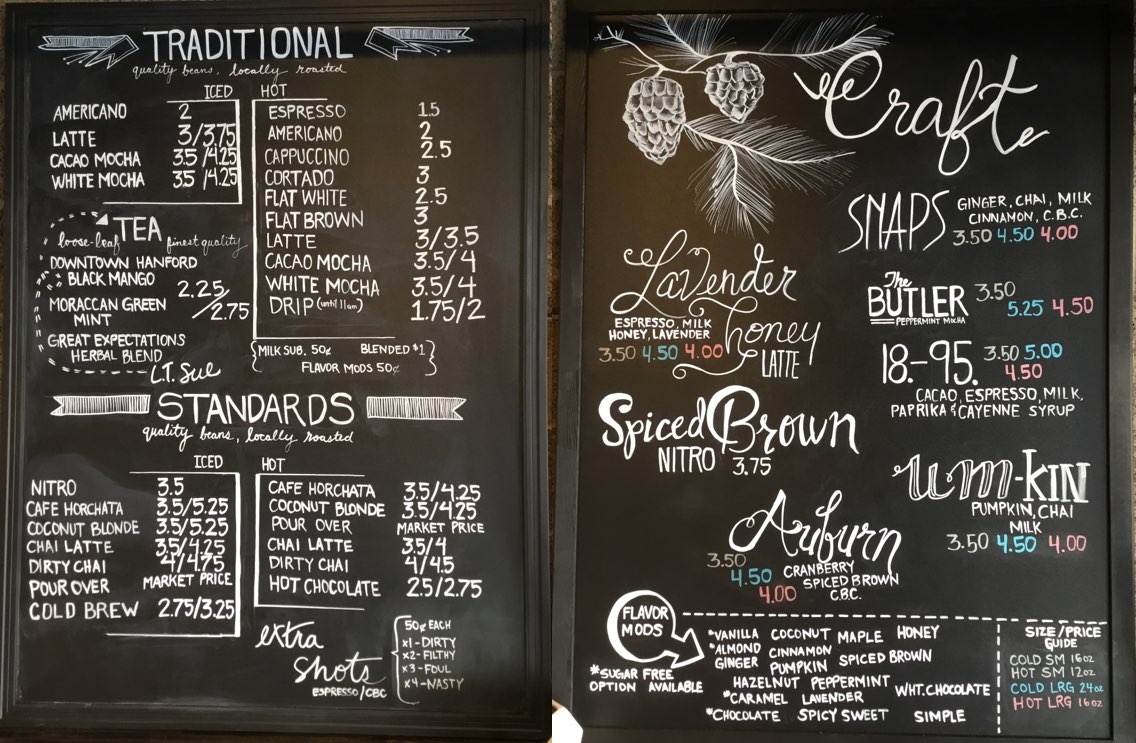 TRADITIONAL
quality beans, locally roasted
ICED
AMERICANO 2
LATTE 3/3.75
CACAO MOCHA 3.5/4.25
WHITE MOCHA 3.5/4.25
HOT
ESPRESSO 1.5
AMERICANO 2
CAPPUCCINO 2.5
CORTADO 3
FLAT WHITE 2.5
FLAT BROWN 3
LATTE 3/3.5
CACAO MOCHA 3.5/4
WHITE MOCHA 3.5/4
DRIP (until 11am) 1.75/2
TEA
loose-leaf finest quality
DOWNTOWN HANFORD
BLACK MANGO
MORACCAN GREEN
MINT
2.25/2.75
GREAT EXPECTATIONS
HERBAL BLEND
L.T. Sue
MILK SUB. 50¢ BLENDED $1
FLAVOR MODS 50¢
STANDARDS
quality beans, locally roasted
ICED
NITRO 3.5
CAFE HORCHATA 3.5/5.25
COCONUT BLONDE 3.5/5.25
CHAI LATTE 3.5/4.25
DIRTY CHAI 4/4.75
POUR OVER MARKET PRICE
COLD BREW 2.75/3.25
HOT
CAFE HORCHATA 3.5/4.25
COCONUT BLONDE 3.5/4.25
POUR OVER MARKET PRICE
CHAI LATTE 3.5/4
DIRTY CHAI 4/4.5
HOT CHOCOLATE 2.5/2.75
extra
shots
ESPRESSO/CBC
50¢ EACH
x1-DIRTY
x2-FILTHY
x3-FOUL
x4-NASTY
Craft
SNAPS
GINGER, CHAI, MILK
CINNAMON, C.B.C.
3.50 4.50 4.00
Lavender
honey
LATTE
ESPRESSO, MILK
HONEY, LAVENDER
3.50 4.50 4.00
The
BUTLER
PEPPERMINT MOCHA
3.50
5.25 4.50
18.-95.
3.50 5.00
4.50
CACAO, ESPRESSO, MILK,
PAPRIKA & CAYENNE SYRUP
Spiced Brown
NITRO 3.75
um-KIN
PUMPKIN, CHAI
MILK
3.50 4.50 4.00
Auburn
3.50
4.50
4.00
CRANBERRY
SPICED BROWN
C.B.C.
FLAVOR
MODS
*SUGAR FREE
OPTION AVAILABLE
*VANILLA COCONUT MAPLE HONEY
*ALMOND CINNAMON
GINGER PUMPKIN SPICED BROWN
HAZELNUT PEPPERMINT
*CARAMEL LAVENDER WHT. CHOCOLATE
*CHOCOLATE SPICY SWEET SIMPLE
SIZE/PRICE
GUIDE
COLD SM 16oz
HOT SM 12oz
COLD LRG 24oz
HOT LRG 16oz